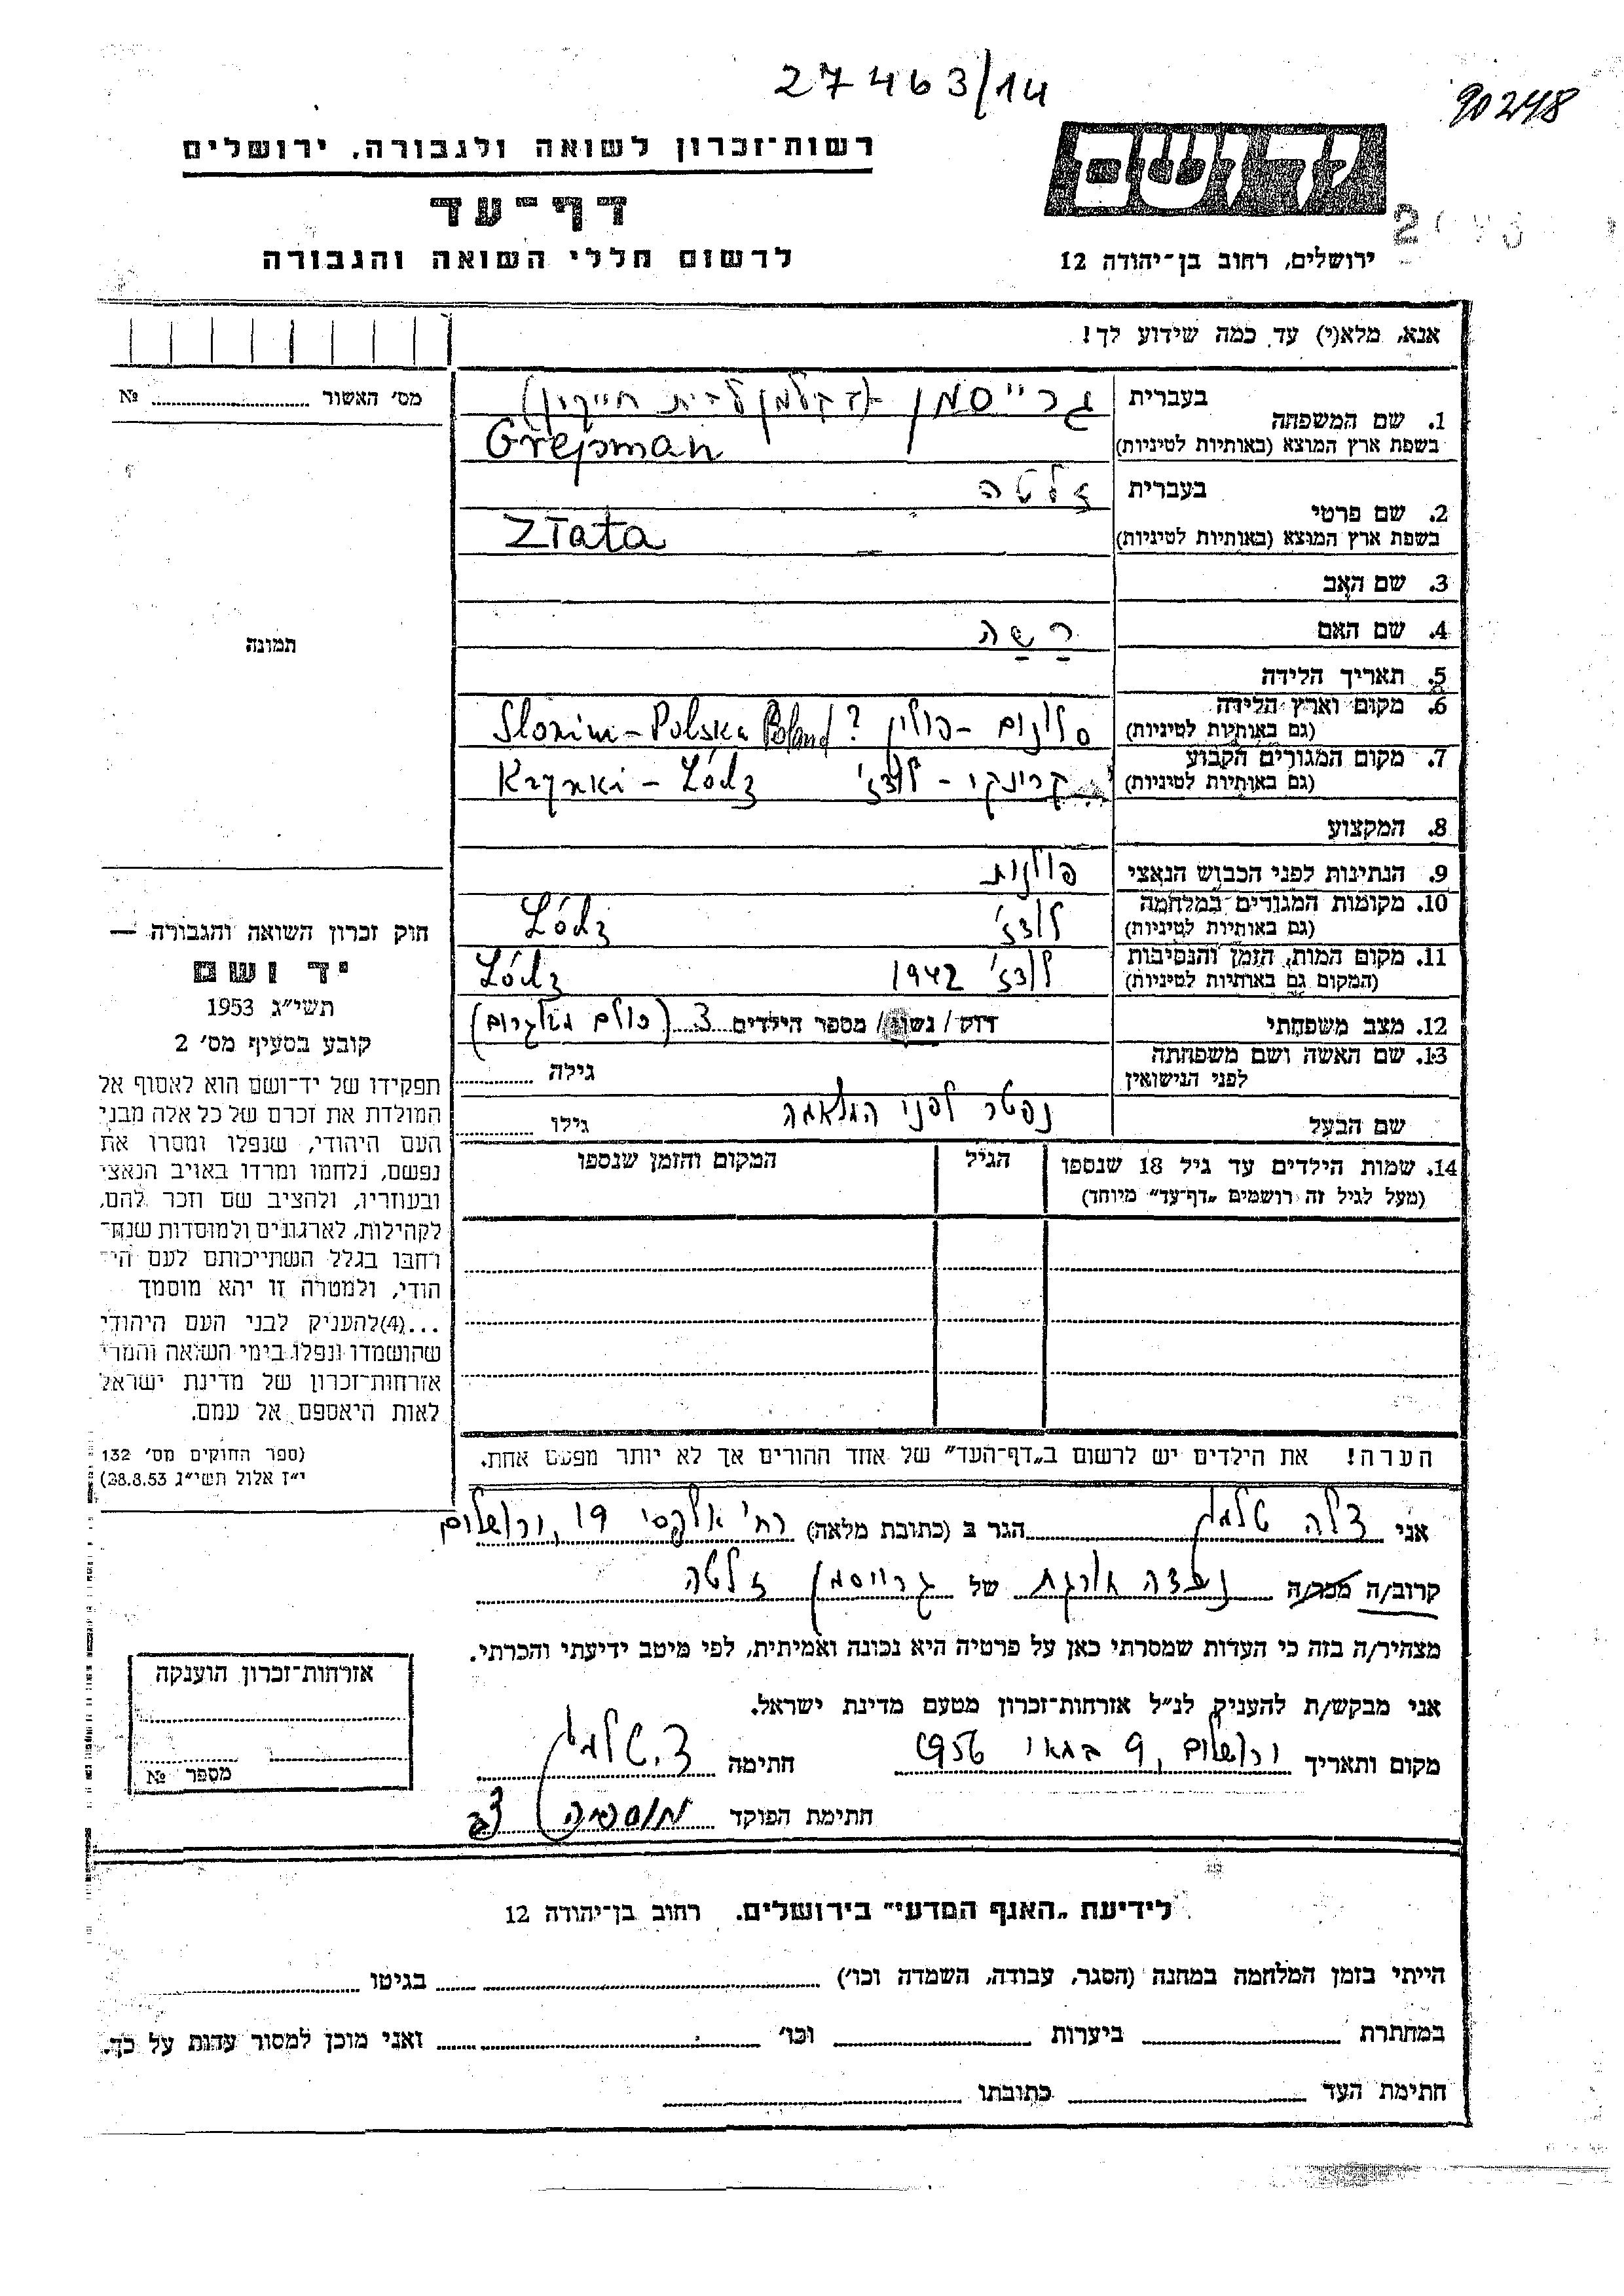 27463/14
90248
ידושם
רשות־זכרון לשואה ולגבורה, ירושלים
דף־עד
לרשום חללי השואה והגבורה
ירושלים, רחוב בן־יהודה 12
אנא, מלא(י) עד כמה שידוע לך!
מס׳ האשור № 
1. שם המשפחה
בעברית גרייסמן
בשפת ארץ המוצא (באותיות לטיניות) Grejsman
2. שם פרטי
בעברית זלטה
בשפת ארץ המוצא (באותיות לטיניות) Złata
3. שם האב
4. שם האם רשה
תמונה
5. תאריך הלידה
6. מקום וארץ הלידה סלונים - פולין ? Slonim - Polska Poland
(גם באותיות לטיניות)
7. מקום המגורים הקבוע קרינקי - לודז׳ Krynki - Łódz
(גם באותיות לטיניות)
8. המקצוע
9. הנתינות לפני הכבוש הנאצי פולנית
10. מקומות המגורים במלחמה לודז׳ Łódz
(גם באותיות לטיניות)
11. מקום המות, הזמן והנסיבות לודז׳ 1942 Łódz
(המקום גם באותיות לטיניות)
12. מצב משפחתי רוק / נשוי / מספר הילדים 3 (כולם מבוגרים)
13. שם האשה ושם משפחתה
לפני הנישואין
גילה
שם הבעל נפטר לפני המלחמה גילו
14. שמות הילדים עד גיל 18 שנספו
(מעל לגיל זה רושמים „דף־עד״ מיוחד)
הגיל
המקום והזמן שנספו
הערה! את הילדים יש לרשום ב„דף־העד״ של אחד ההורים אך לא יותר מפעם אחת.
חוק זכרון השואה והגבורה —
יד ושם
תשי״ג 1953
קובע בסעיף מס׳ 2
תפקידו של יד־ושם הוא לאסוף אל
המולדת את זכרם של כל אלה מבני
העם היהודי, שנפלו ומסרו את
נפשם, נלחמו ומרדו באויב הנאצי
ובעוזריו, ולהציב שם וזכר להם,
לקהילות, לארגונים ולמוסדות שנח־
רחבו בגלל השתייכותם לעם הי־
הודי, ולמטרה זו יהא מוסמך
...(4)להעניק לבני העם היהודי
שהושמדו ונפלו בימי השואה והמרי
אזרחות־זכרון של מדינת ישראל
לאות היאספם אל עמם.
(ספר החוקים מס׳ 132
י״ז אלול תשי״ג 28.8.53)
אני צלה הגר ב (כתובת מלאה) רח׳ 19, ירושלים
קרוב/ה מכר/ה של גרייסמן זלטה
מצהיר/ה בזה כי העדות שמסרתי כאן על פרטיה היא נכונה ואמיתית, לפי מיטב ידיעתי והכרתי.
אני מבקש/ת להעניק לנ״ל אזרחות־זכרון מטעם מדינת ישראל.
מקום ותאריך ירושלים, 9 במאי 1956 חתימה
חתימת הפוקד
אזרחות־זכרון הוענקה
מספר №
לידיעת „האגף המדעי״ בירושלים. רחוב בן־יהודה 12
הייתי בזמן המלחמה במחנה (הסגר, עבודה, השמדה וכו׳) בגיטו
במחתרת ביערות וכו׳ ואני מוכן למסור עדות על כך.
חתימת העד כתובתו